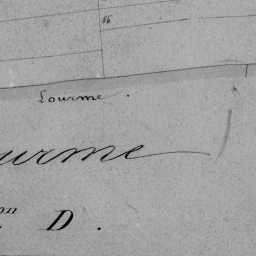 86
Lourme .
urme
on D .